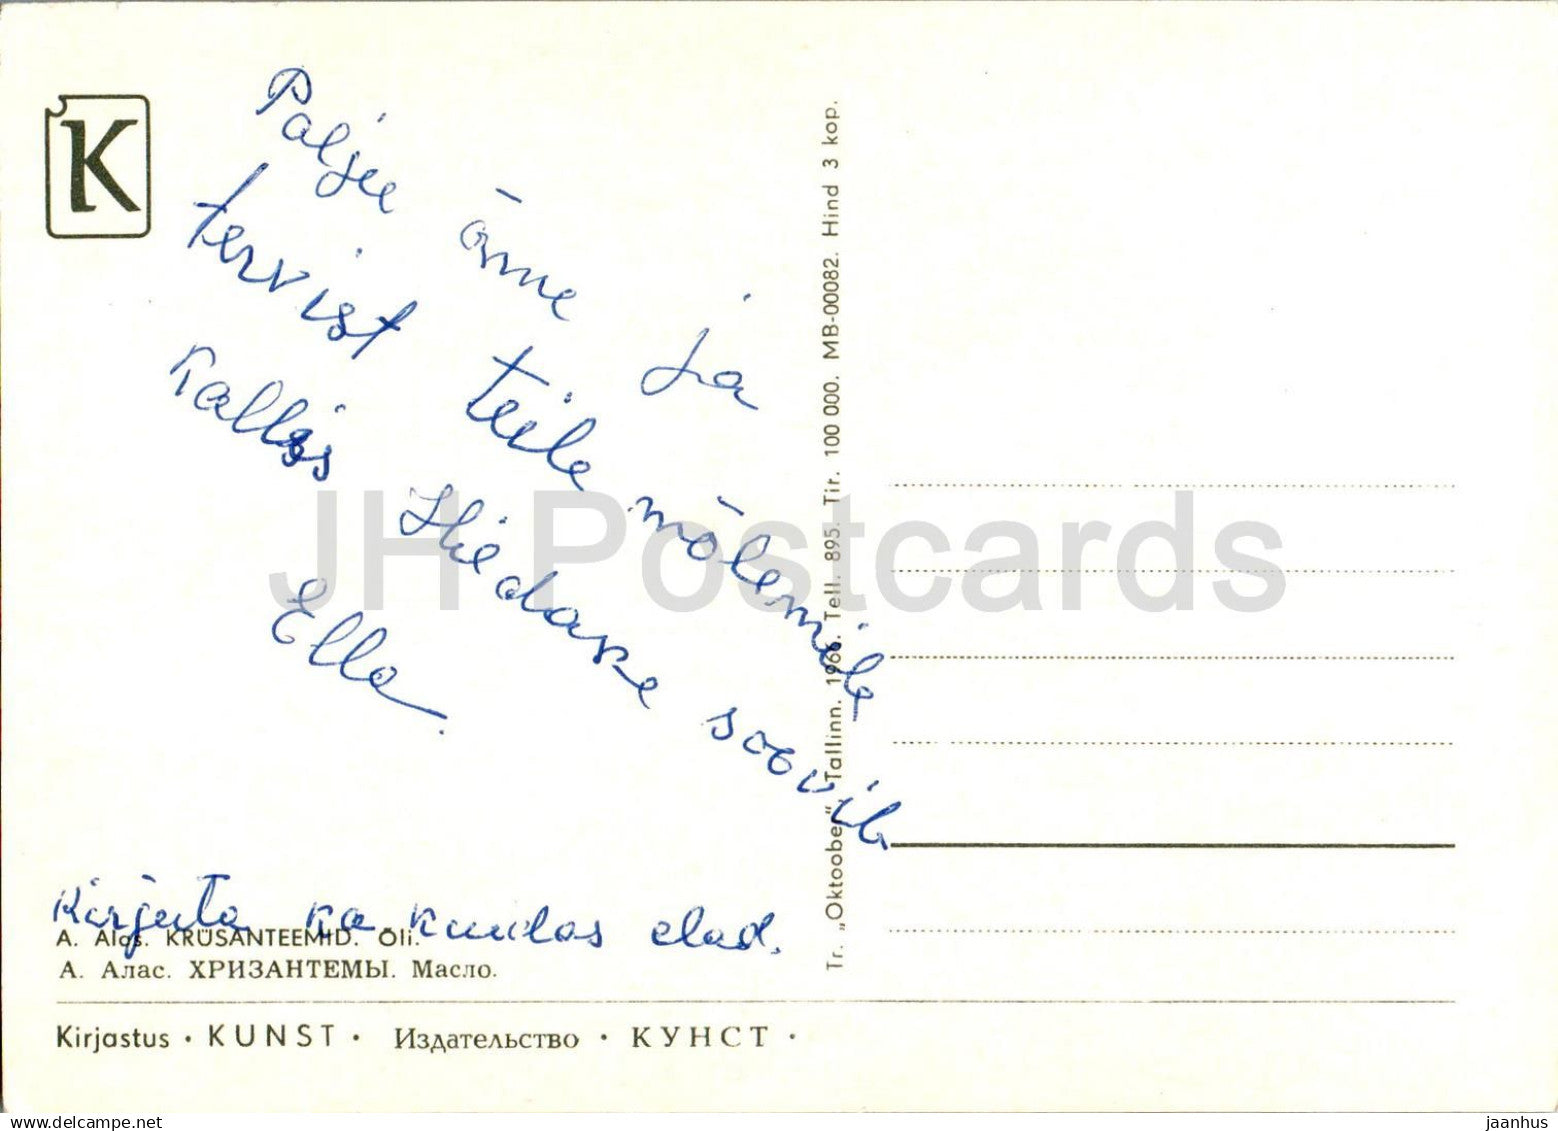 K
Palju õnne ja
tervist teile mõlemile
Kallis Hiedake soovib
Ella.
Kirjuta ka kuidas elad.
A. Alas. KRÜSANTEEMID. Õli.
А. Алас. ХРИЗАНТЕМЫ. Масло.
Kirjastus • KUNST • Издательство • КУНСТ •
Tr. „Oktoober“, Tallinn. 1966. Tell. 895. Tir. 100 000. MB-00082. Hind 3 kop.
JH Postcards
www.delcampe.net
jaanhus